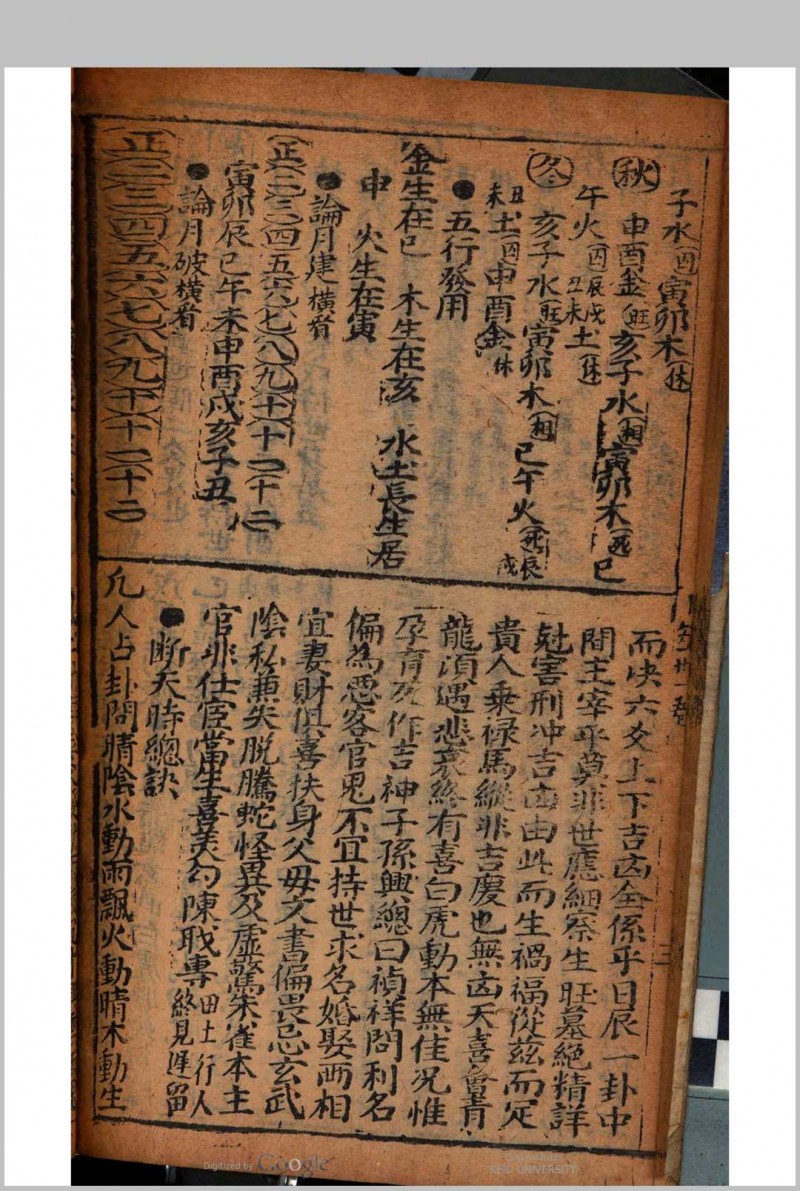 子水囚寅卯木休
秋 申酉金旺亥子水相寅卯木死巳
午火囚辰戌丑未土休
冬 亥子水旺寅卯木相巳午火死辰戌
丑未土囚申酉金休
●五行發用
金生在巳 木生在亥 水土長生居
申 火生在寅
●論月建橫看
正二三四五六七八九十十一十二
寅卯辰巳午未申酉戌亥子丑
●論月破橫看
正二三四五六七八九十十一十二
而决六爻上下吉凶全係乎日辰一卦中
間主宰乎莫非世應細察生旺墓絕精詳
尅害刑冲吉凶由此而生禍福從茲而定
貴人乗禄馬縱非吉慶也無凶天喜會青
龍須遇悲哀終有喜白虎動本無佳况惟
孕育及作吉神子孫興總曰禎祥問利名
偏為惡客官鬼不宜持世求名婚娶两相
宜妻財俱喜扶身父毋文書偏畏忌玄武
陰私兼失脱騰蛇怪異及虚驚朱雀本主
官非仕宦當生喜美勾陳职專田土行人終見遲留
●断天時總訣
凢人占卦問晴陰水動雨飄火動晴木動生
三
Digitized by Google
Original from
KEIO UNIVERSITY